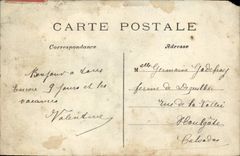 CARTE POSTALE
Correspondance
Adresse
Bonjour à tous
Encore 9 jours et les
vacances
Valentine
Melle Germaine Godefroy
ferme de
rue de la Vallée
Houlgate
Calvados